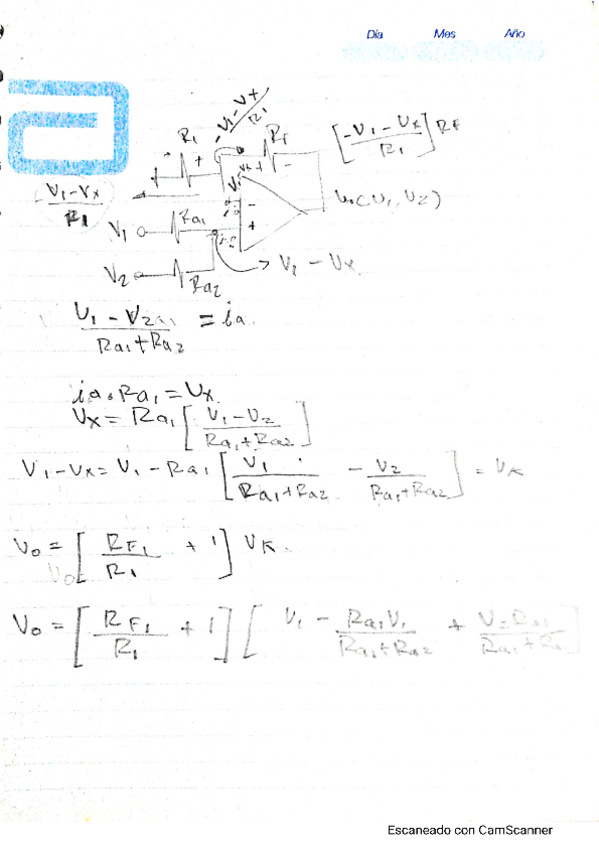 Día Mes Año
-V1-Vx/R1
R1 + Rf -
[-V1-Vx/R1] RF
V1-Vx/R1
Vo(V1, V2)
V1 Ra1 - +
→ V1 - Vx
V2 Ra2
V1 - V2/Ra1+Ra2 = ia.
ia.Ra1 = Vx.
Vx = Ra1 [V1-V2/Ra1+Ra2]
V1-Vx = V1 - Ra1 [V1/Ra1+Ra2 - V2/Ra1+Ra2] = Vk
Vo = [RF1/R1 + 1] Vk.
Vo = [RF1/R1 + 1] [V1 - Ra1V1/Ra1+Ra2 + V2Ra1/Ra1+Ra2]
Escaneado con CamScanner